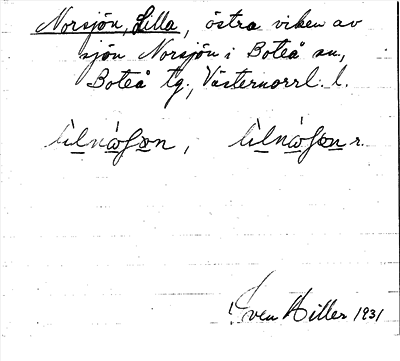 Norsjön, Lilla, östra viken av
sjön Norsjön i Boteå sn,
Boteå tg., Västernorrl. l.
Sven Hiller 1931